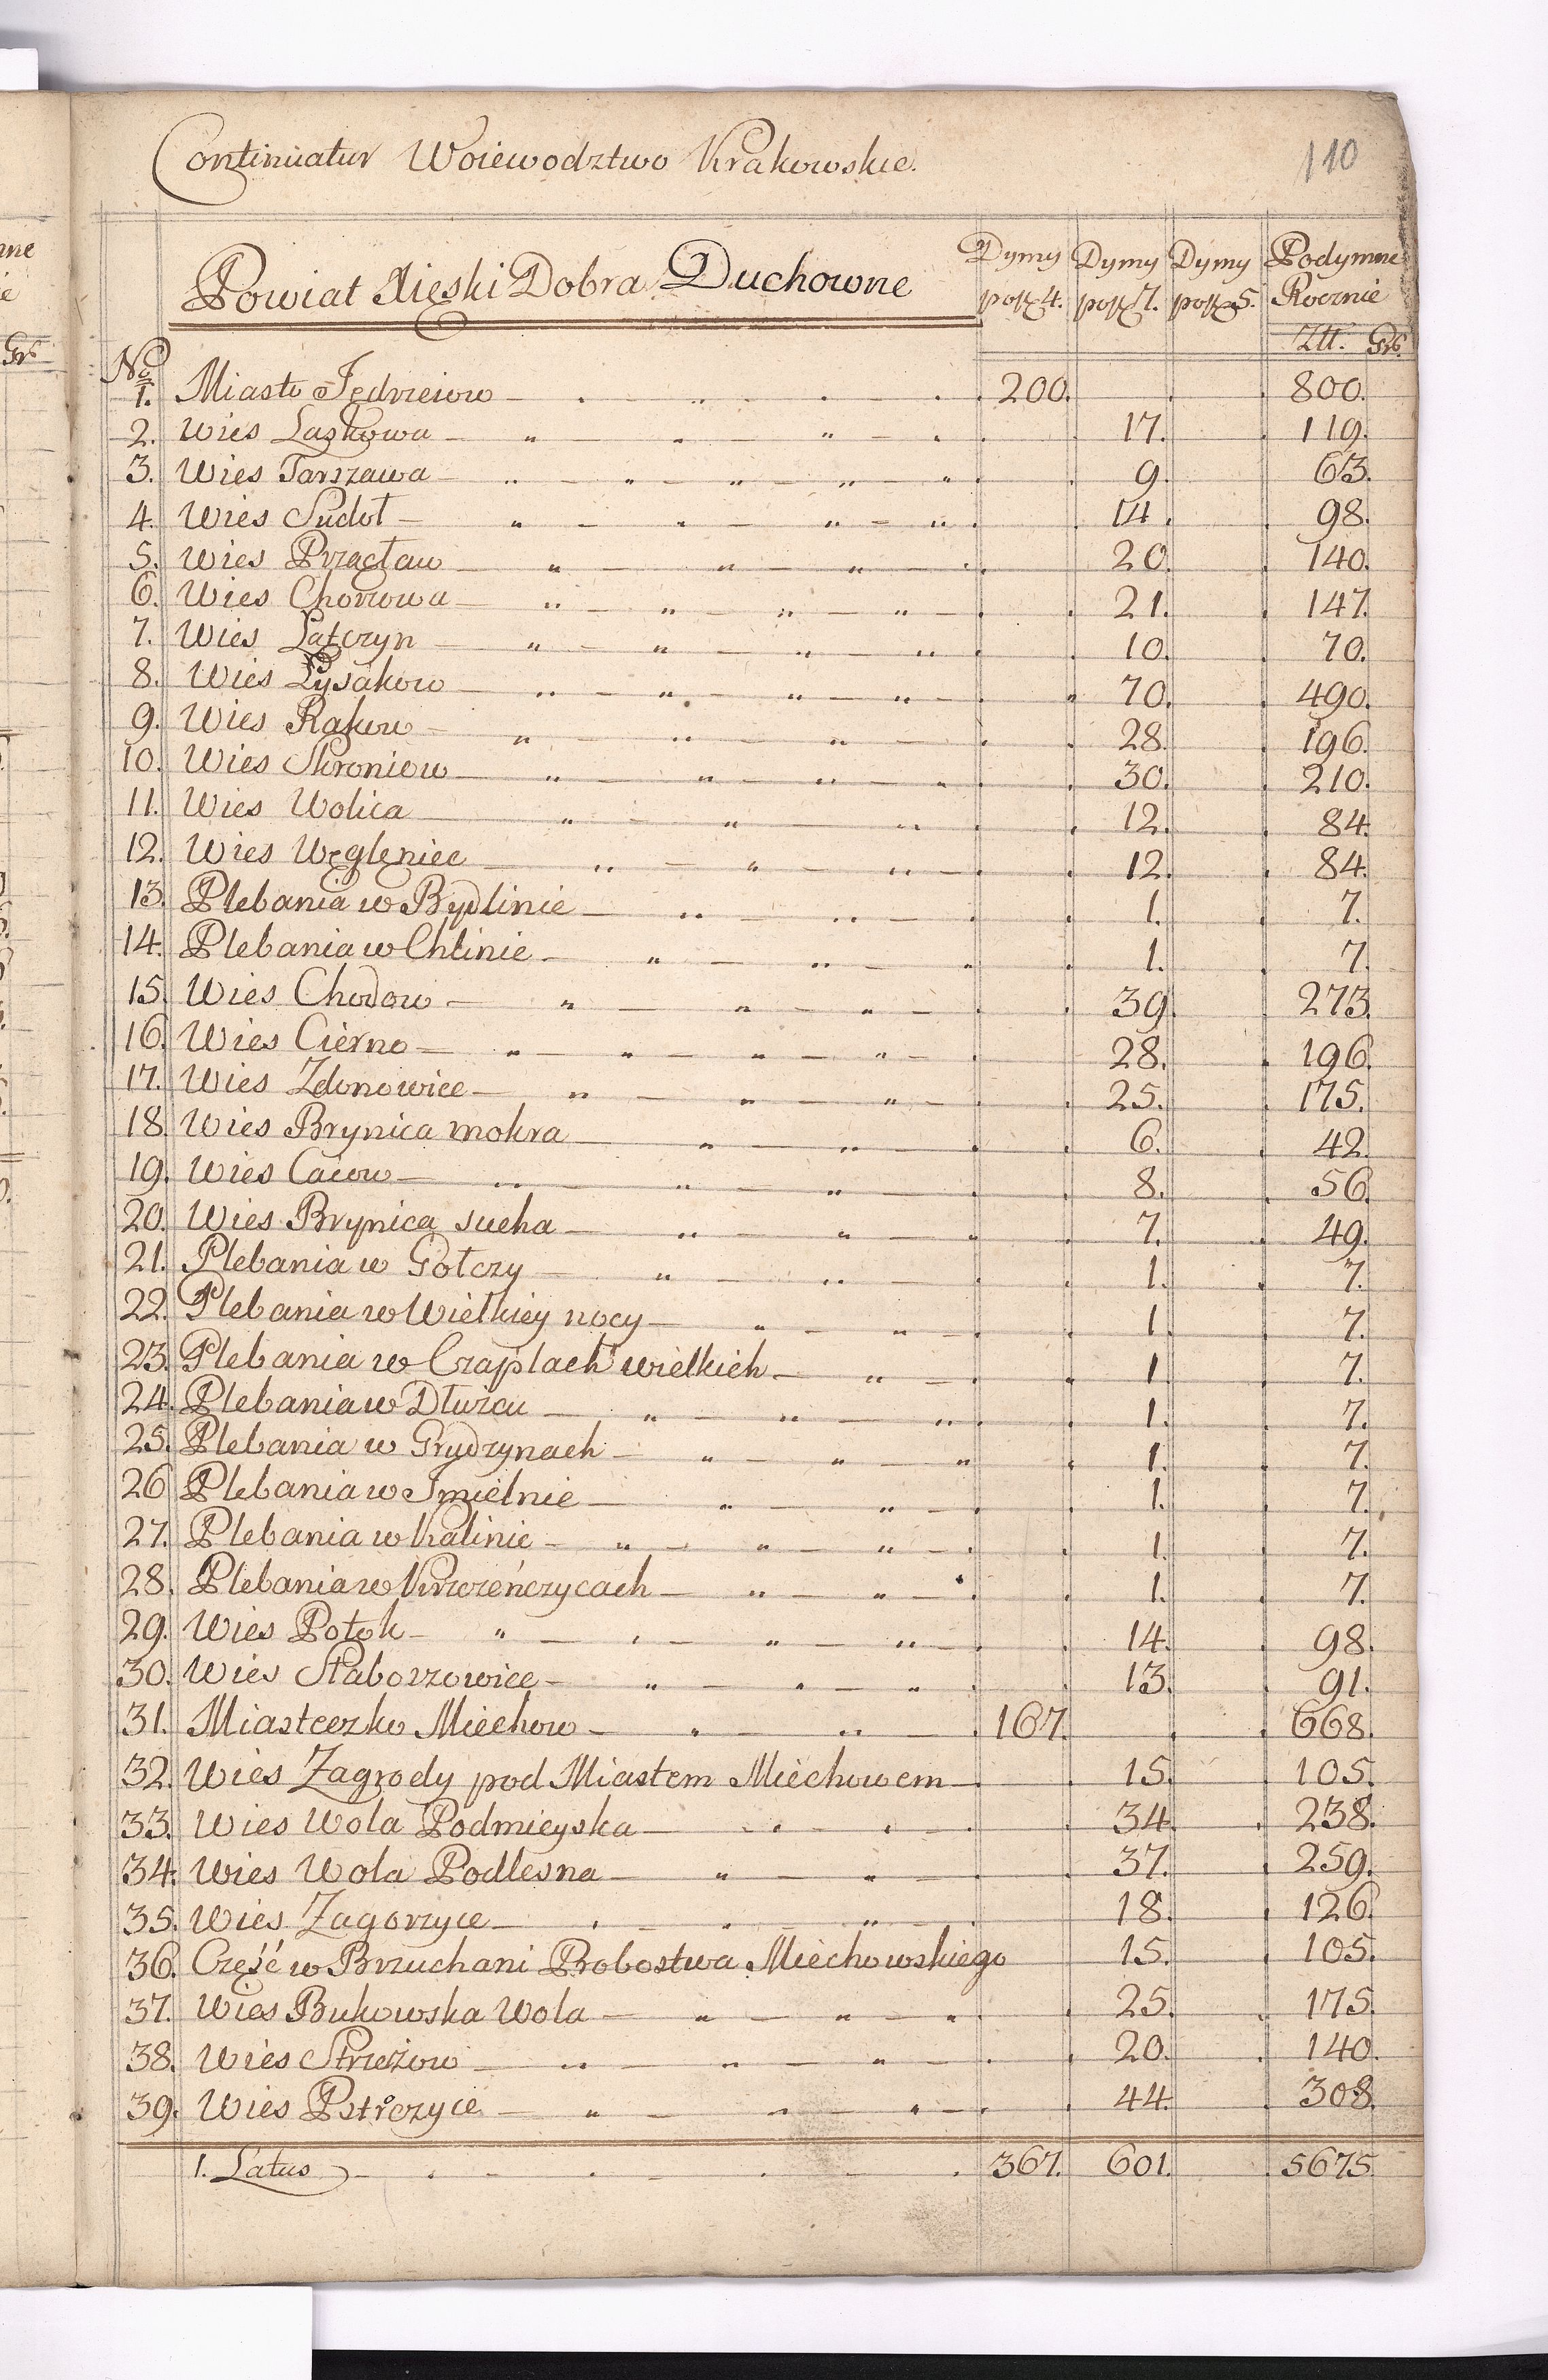 Continuatur Woiewodztwo Krakowskie.
110
Powiat Xięski Dobra Duchowne
Dymy po zł 4. Dymy po zł 7. Dymy po zł 5. Podymne Rocznie
Złł. Grs.
No.
1. Miasto Jędrzeiow 200. 800.
2. Wies Laskowa 17. 119.
3. Wies Tarszawa 9. 63.
4. Wies Sudoł 14. 98.
5. Wies Przecław 20. 140.
6. Wies Chorzowa 21. 147.
7. Wies Łatczyn 10. 70.
8. Wies Łysakow 70. 490.
9. Wies Rakow 28. 196.
10. Wies Skroniow 30. 210.
11. Wies Wolica 12. 84.
12. Wies Węgleniec 12. 84.
13. Plebania w Bydlinie 1. 7.
14. Plebania w Chlinie 1. 7.
15. Wies Chodow 39. 273.
16. Wies Cierno 28. 196.
17. Wies Zdonowice 25. 175.
18. Wies Brynica mokra 6. 42.
19. Wies Cacow 8. 56.
20. Wies Brynica sucha 7. 49.
21. Plebania w Gołczy 1. 7.
22. Plebania w Wielkiey nocy 1. 7.
23. Plebania w Czaplach wielkich 1. 7.
24. Plebania w Dłużcu 1. 7.
25. Plebania w Grudzynach 1. 7.
26 Plebania w Imielnie 1. 7.
27. Plebania w Kalinie 1. 7.
28. Plebania w Krzczeńczycach 1. 7.
29. Wies Potok 14. 98.
30. Wies Słaborzowice 13. 91.
31. Miasteczko Miechow 167. 668.
32. Wies Zagrody pod Miastem Miechowem 15. 105.
33. Wies Wola Podmieyska 34. 238.
34. Wies Wola Podlesna 37. 259.
35. Wies Zagorzyce 18. 126.
36. Część w Brzuchani Probostwa Miechowskiego 15. 105.
37. Wies Bukowska Wola 25. 175.
38. Wies Strzeżow 20. 140.
39. Wies Pstroczyce 44. 308.
1. Latus 367. 601. 5675.